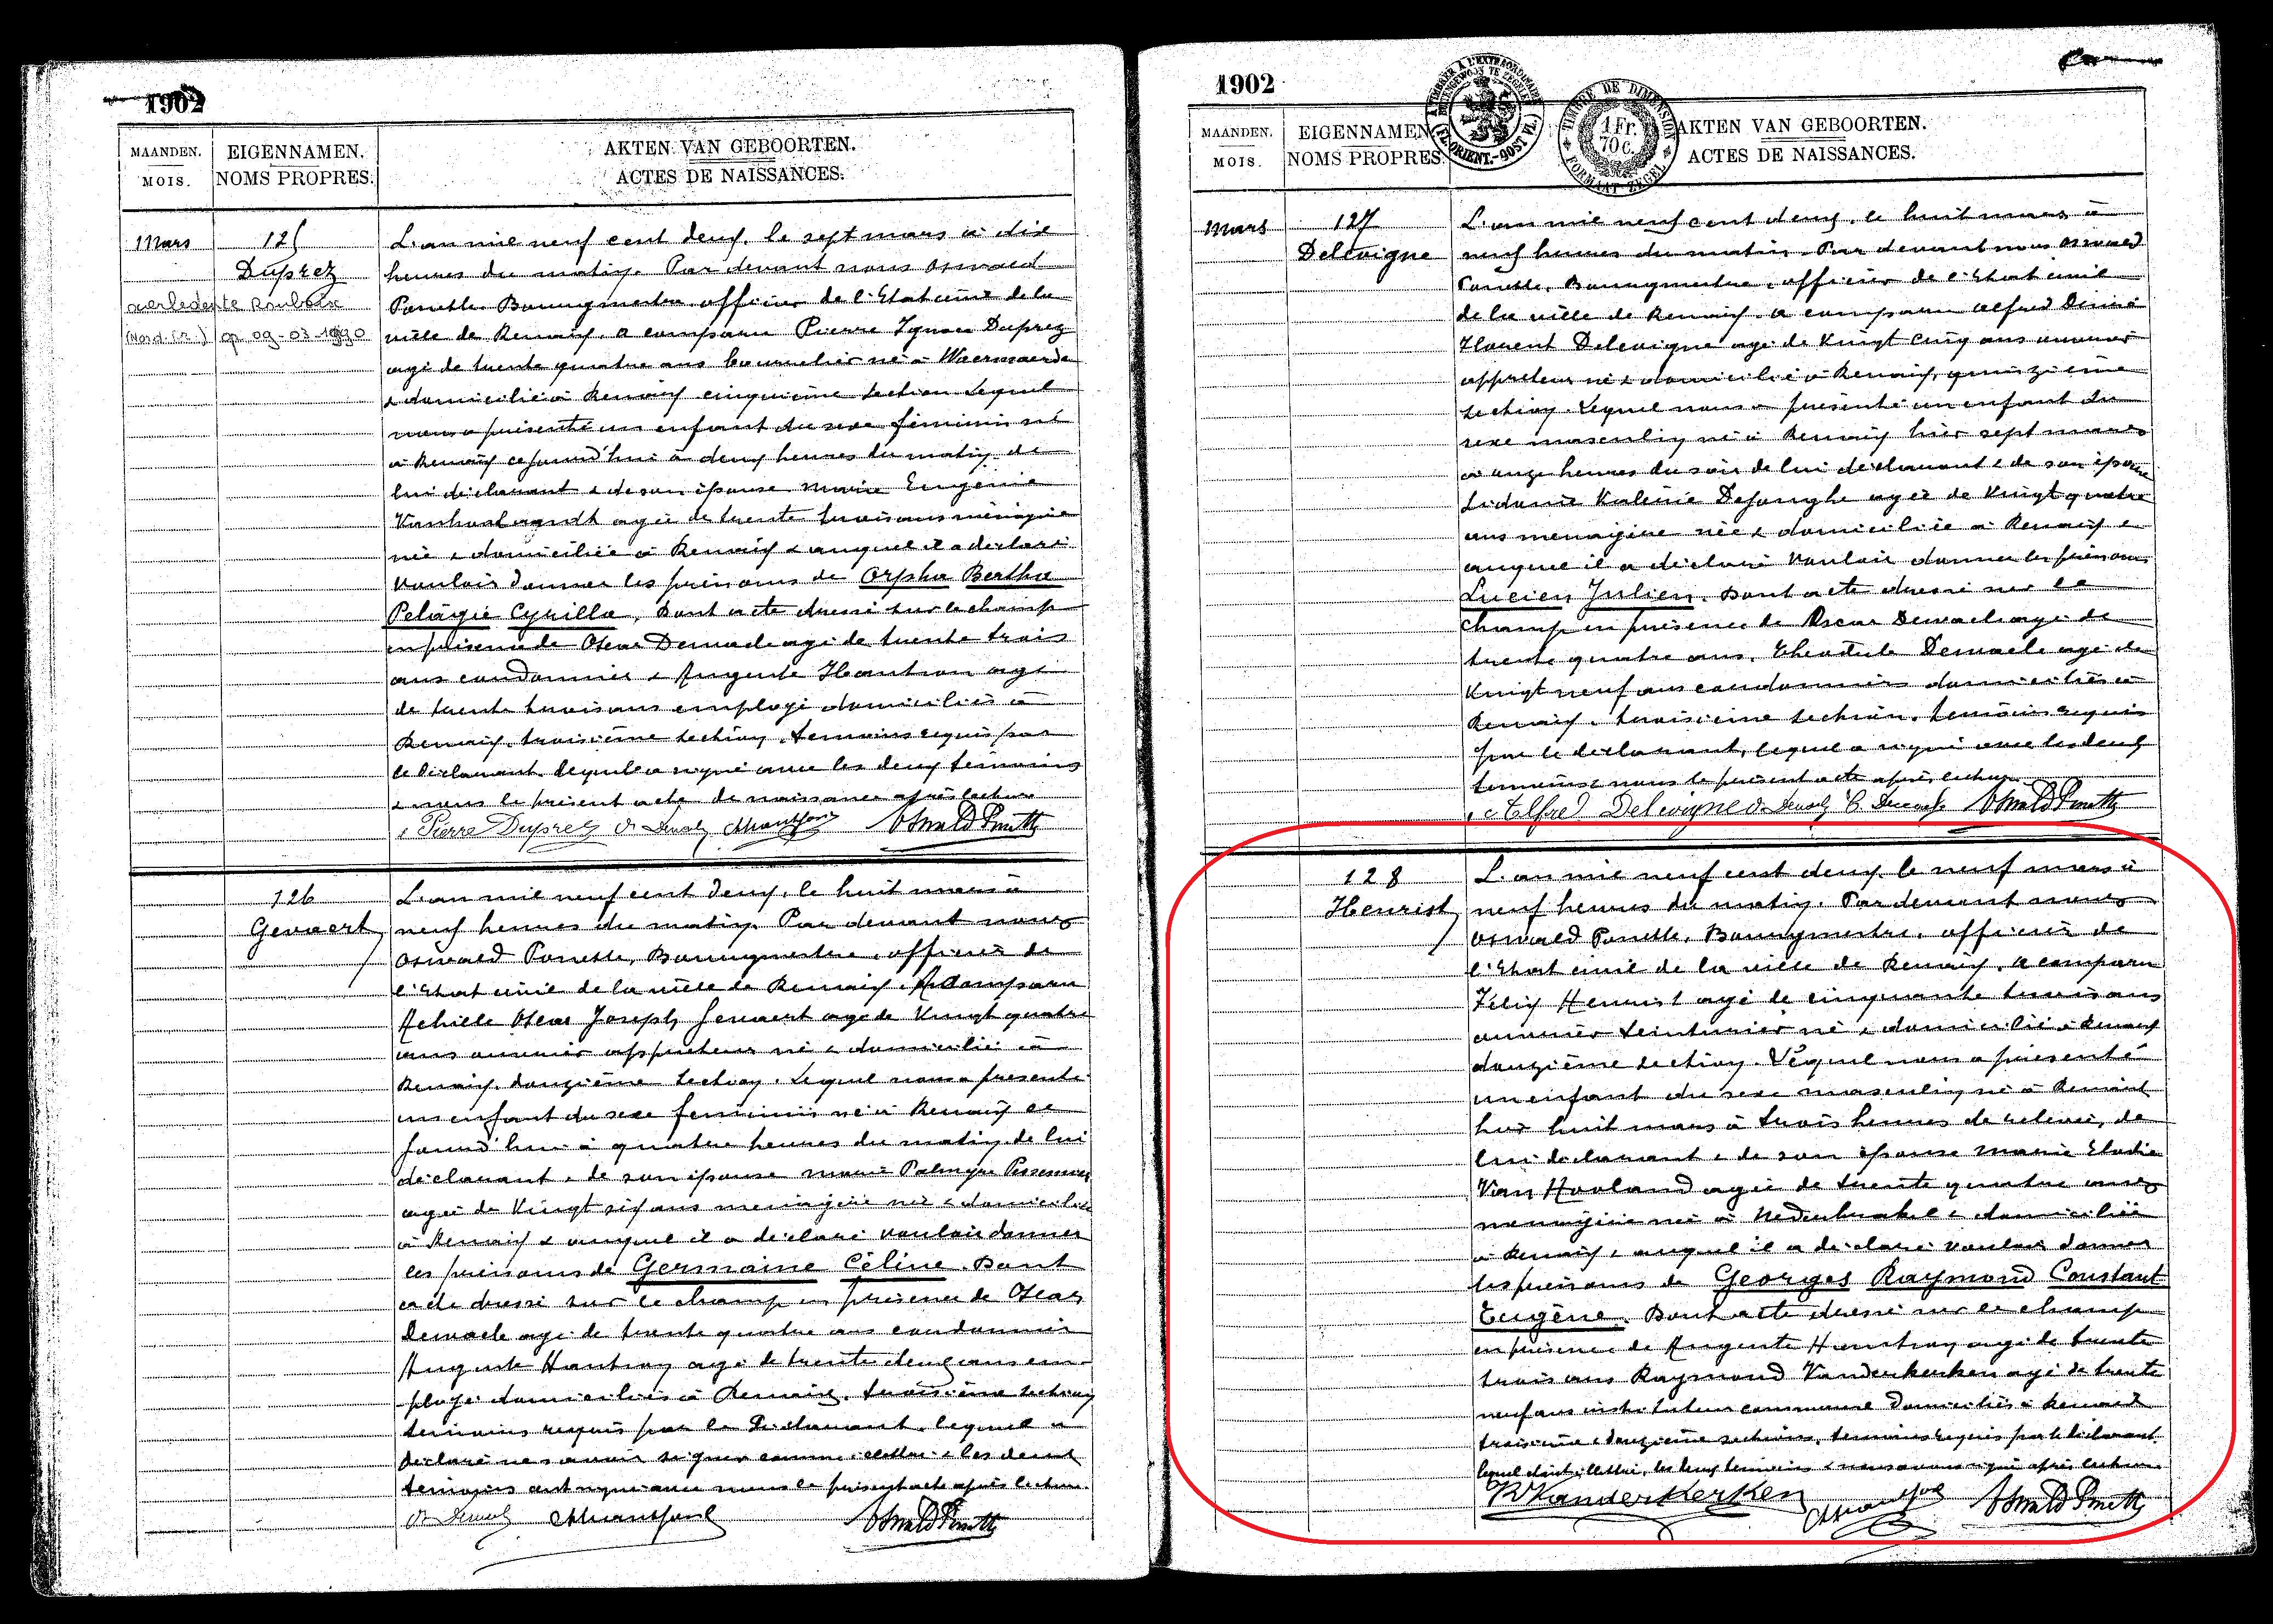 1902
MAANDEN.
MOIS.
EIGENNAMEN.
NOMS PROPRES.
AKTEN VAN GEBOORTEN.
ACTES DE NAISSANCES.
Mars
125
Duprez
overleden te Roubaix
(Nord. Fr.) op 09-03-1990
L'an mil neuf cent deux, le sept mars à dix
heures du matin. Par devant nous Oswald
Ponette, Bourgmestre officier de l'Etat civil de la
ville de Renaix, a comparu Pierre Duprez
agé de trente quatre ans né à Waermaerde
& domicilié à Renaix cinquième section Lequel
nous a présenté un enfant du sexe féminin né
à Renaix cejourd'hui à deux heures du matin de
lui déclarant & de son épouse Marie Eugénie
agée de trente trois ans ménagère
née & domiciliée à Renaix & auquel il a déclaré
vouloir donner les prénoms de Orpha Bertha
Pelagie Cyrilla, Dont acte dressé sur le champ
en présence de Oscar Demaele agé de trente trois
ans cordonnier & Auguste Hantson agé
de trente trois ans employé domiciliés à
Renaix, troisième section, témoins requis par
le déclarant. Lequel a signé avec les deux témoins
& nous le présent acte de naissance après lecture
Pierre Duprez
126
Gevaert
L'an mil neuf cent deux, le huit mars à
neuf heures du matin. Par devant nous
Oswald Ponette, Bourgmestre, officier de
l'Etat civil de la ville de Renaix, A comparu
Achille Oscar Joseph Gevaert agé de Vingt quatre
ans ouvrier appreteur né & domicilié à
Renaix, douzième section. Lequel nous a présenté
un enfant du sexe feminin né à Renaix ce
jourd'hui à quatre heures du matin de lui
déclarant & de son épouse Marie Palmyre
agée de Vingt six ans ménagère née & domiciliée
à Renaix & auquel il a déclaré vouloir donner
les prénoms de Germaine Céline. Dont
acte dressé sur le champ en présence de Oscar
Demaele agé de trente quatre ans cordonnier
Auguste Hantson agé de trente deux ans em-
ployé domiciliés à Renaix, troisième section
témoins requis par le Déclarant, lequel a
déclaré ne savoir signer comme illettré & les deux
témoins ont signé avec nous le présent acte après lecture.
1902
MAANDEN.
MOIS.
EIGENNAMEN.
NOMS PROPRES.
AKTEN VAN GEBOORTEN.
ACTES DE NAISSANCES.
TIMBRE DE DIMENSION
1 Fr.
70 c.
FORMAAT ZEGEL
Mars
127
Delvoigne
L'an mil neuf cent deux, le huit mars à
neuf heures du matin. Par devant nous Oswald
Ponette, Bourgmestre, officier de l'Etat civil
de la ville de Renaix, a comparu Alfred Désiré
Florent Delvoigne agé de Vingt Cinq ans ouvrier
appreteur né & domicilié à Renaix, quinzième
section. Lequel nous a présenté un enfant du
sexe masculin né à Renaix hier sept mars
à onze heures du soir de lui déclarant & de son épouse
Sidonie Valérie Dejonghe agée de Vingt quatre
ans ménagère née & domiciliée à Renaix &
auquel il a déclaré vouloir donner les prénoms
Lucien Julien. Dont acte dressé sur le
champ en présence de Oscar Demaele agé de
trente quatre ans, Théophile Demaele agé de
Vingt neuf ans cordonniers domiciliés à
Renaix, troisième section, témoins requis
par le déclarant, lequel a signé avec les deux
témoins & nous le présent acte après lecture
Alfred Delvoigne
128
Henrist
L'an mil neuf cent deux, le neuf mars à
neuf heures du matin. Par devant nous
Oswald Ponette, Bourgmestre, officier de
l'Etat civil de la ville de Renaix, a comparu
Félix Henrist agé de cinquante trois ans
ouvrier teinturier né & domicilié à Renaix
douzième section. Lequel nous a présenté
un enfant du sexe masculin né à Renaix
hier huit mars à trois heures de relevée, de
lui déclarant & de son épouse Marie Elodie
Van Hooland agée de trente quatre ans
ménagère née à Nederbrakel & domiciliée
à Renaix & auquel il a déclaré vouloir donner
les prénoms de Georges Raymond Constant
Eugène. Dont acte dressé sur le champ
en présence de Auguste Hantson agé de trente
trois ans Raymond Vanderkerken agé de trente
neuf ans instituteur communal domiciliés à Renaix
troisième & douzième sections, témoins requis par le déclarant
lequel étant illettré, les deux témoins & nous avons signé après lecture
R Vanderkerken